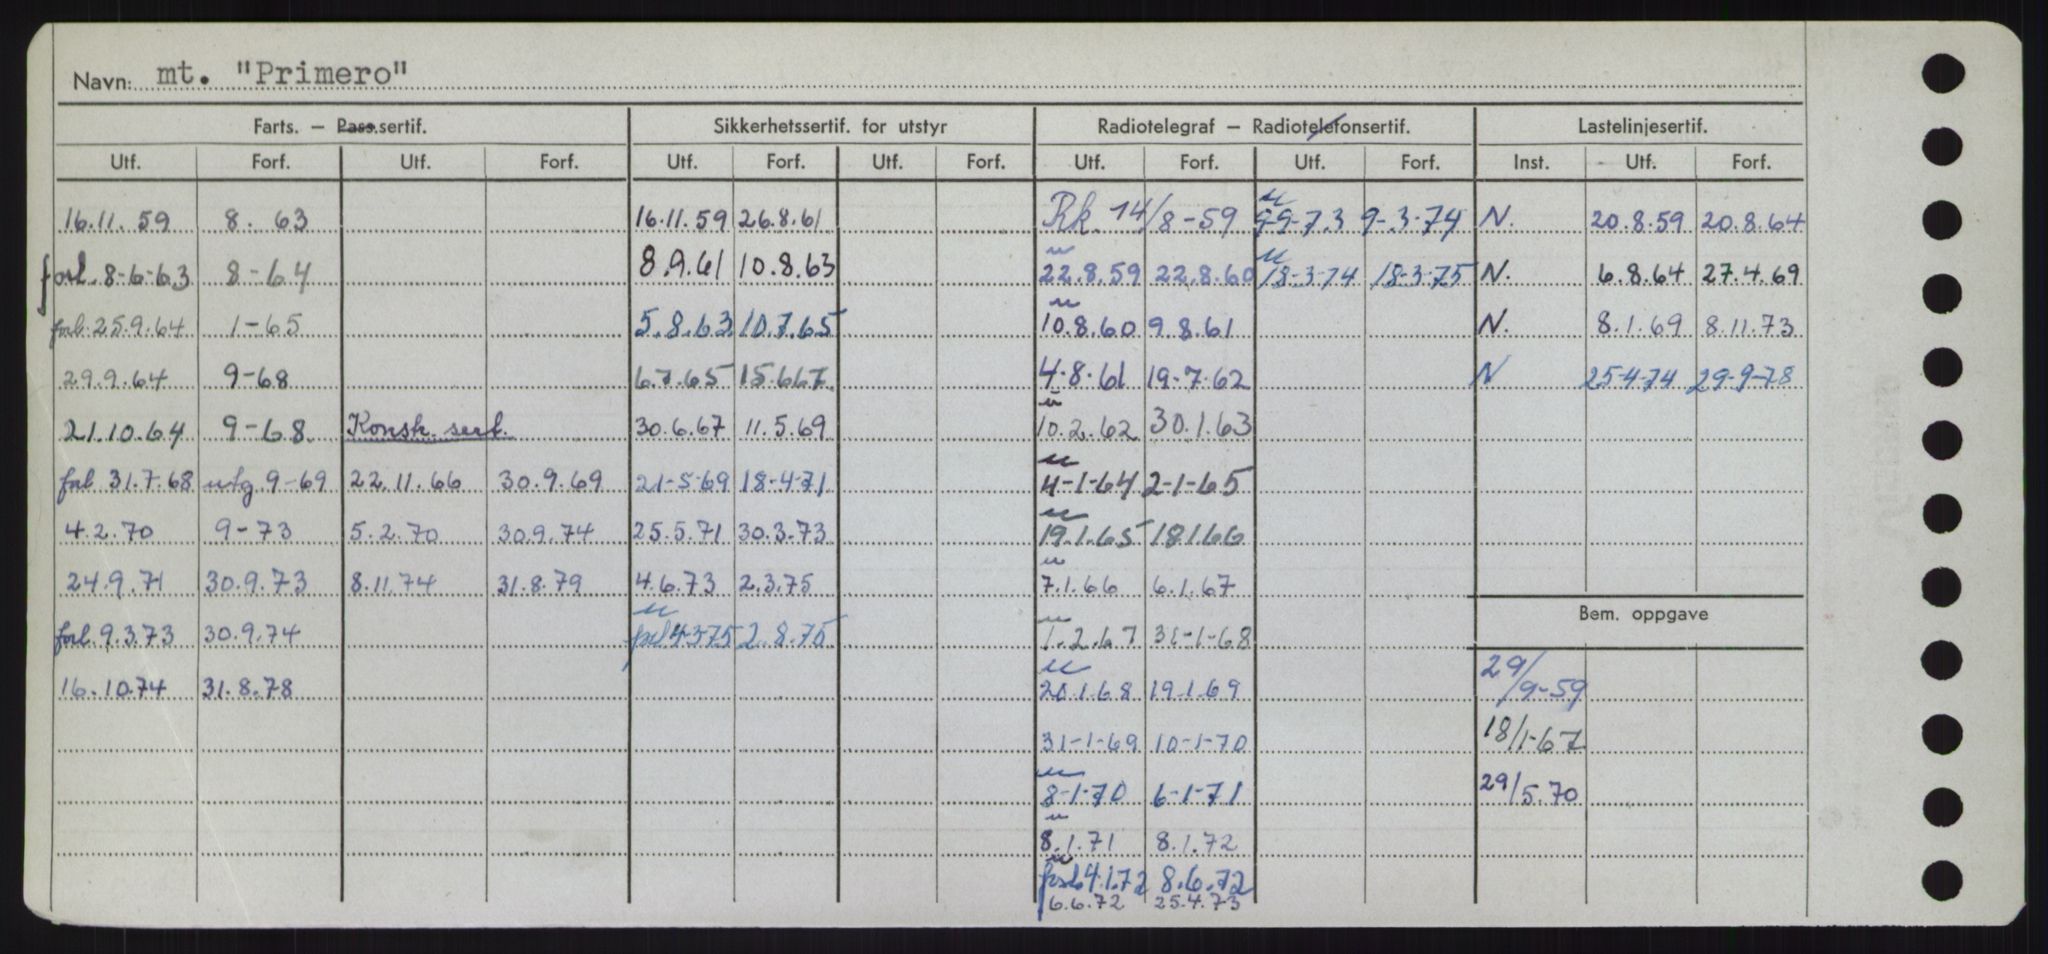 Navn: mt. "Primero"
Farts. – Pass.sertif. Sikkerhetssertif. for utstyr Radiotelegraf – Radiotelefonsertif. Lastelinjesertif.
Utf. Forf. Utf. Forf. Utf. Forf. Utf. Forf. Utf. Forf. Utf. Forf. Inst. Utf. Forf.
16.11.59 8. 63 16.11.59 26.8.61 Rk. 14/8-59 9-3-74 N. 20.8.59 20.8.64
forl. 8-6-63 8-64 8.9.61 10.8.63 22.8.59 22.8.60 18-3-74 18-3-75 N. 6.8.64 27.4.69
forl. 25.9.64 1-65 5.8.63 10.7.65 10.8.60 9.8.61 N. 8.1.69 8.11.73
29.9.64 9-68 6.7.65 15.6.67 4.8.61 19.7.62 N 25-4-74 29-9-78
21.10.64 9-68 Konsk. sert. 30.6.67 11.5.69 10.2.62 30.1.63
forl 31.7.68 utg 9-69 22.11.66 30.9.69 21-5-69 18-4-71 4-1-64 2-1-65
4.2.70 9-73 5.2.70 30.9.74 25.5.71 30.3.73 19.1.65 18.1.66
24.9.71 30.9.73 8.11.74 31.8.79 4.6.73 2.3.75 7.1.66 6.1.67
Bem. oppgave
forl. 9.3.73 30.9.74 forl 4-3-75 2.8.75 1.2.67 31-1-68
16.10.74 31.8.78 20.1.68 19.1.69 29/9-59
31-1-69 10-1-70 18/1-67
8-1-70 6-1-71 29/5.70
8.1.71 8.1.72
forl. 4.1.72 8.6.72
6.6.72 25.4.73